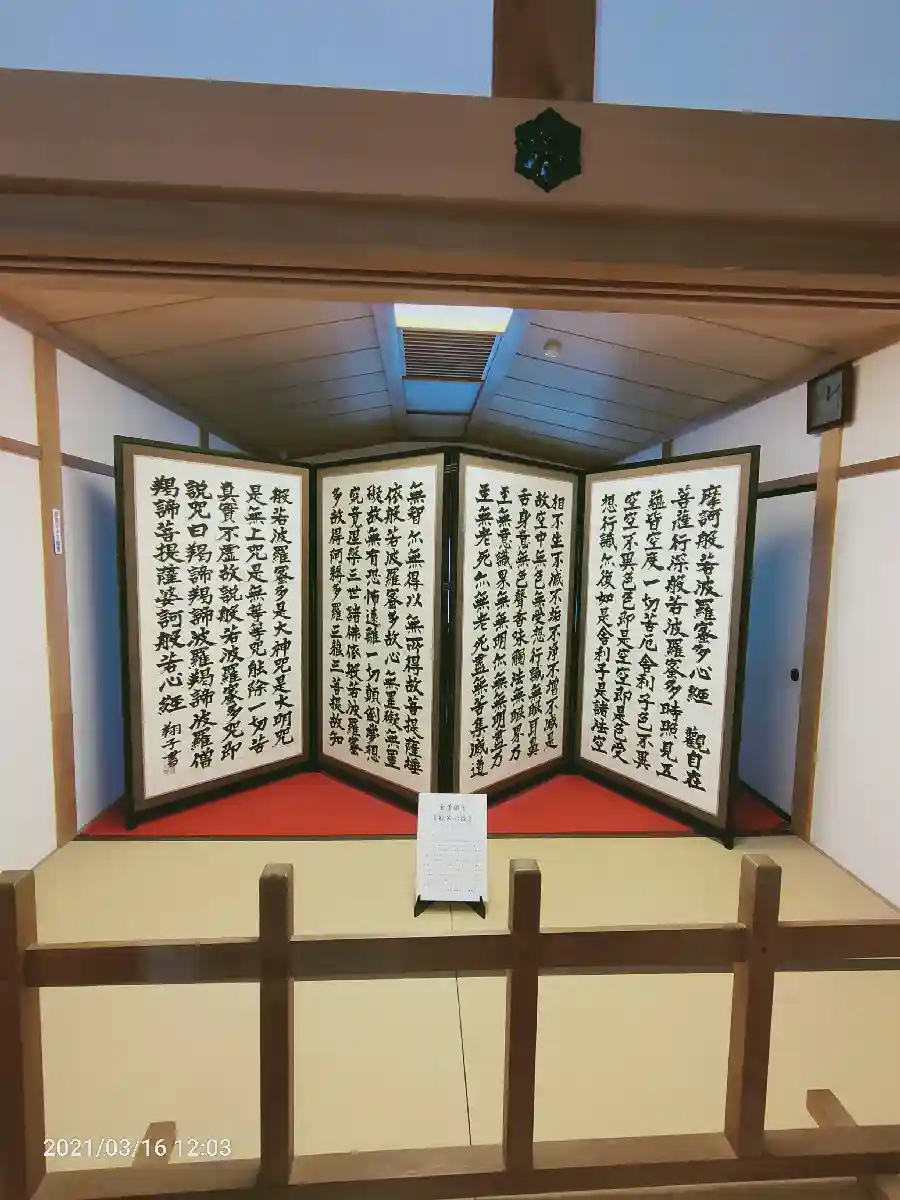 摩訶般若波羅蜜多心經 觀自在
菩薩行深般若波羅蜜多時照見五
蘊皆空度一切苦厄舍利子色不異
空空不異色色即是空空即是色受
想行識亦復如是舍利子是諸法空
相不生不滅不垢不淨不增不減是
故空中無色無受想行識無眼耳鼻
舌身意無色聲香味觸法無眼界乃
至無意識界無無明亦無無明盡乃
至無老死亦無老死盡無苦集滅道
無智亦無得以無所得故菩提薩埵
依般若波羅蜜多故心無罣礙無罣
礙故無有恐怖遠離一切顛倒夢想
究竟涅槃三世諸佛依般若波羅蜜
多故得阿耨多羅三藐三菩提故知
般若波羅蜜多是大神咒是大明咒
是無上咒是無等等咒能除一切苦
真實不虛故說般若波羅蜜多咒即
說咒曰羯諦羯諦波羅羯諦波羅僧
羯諦菩提薩婆訶般若心經 翔子書
金澤翔子
「般若心経」
2021/03/16 12:03